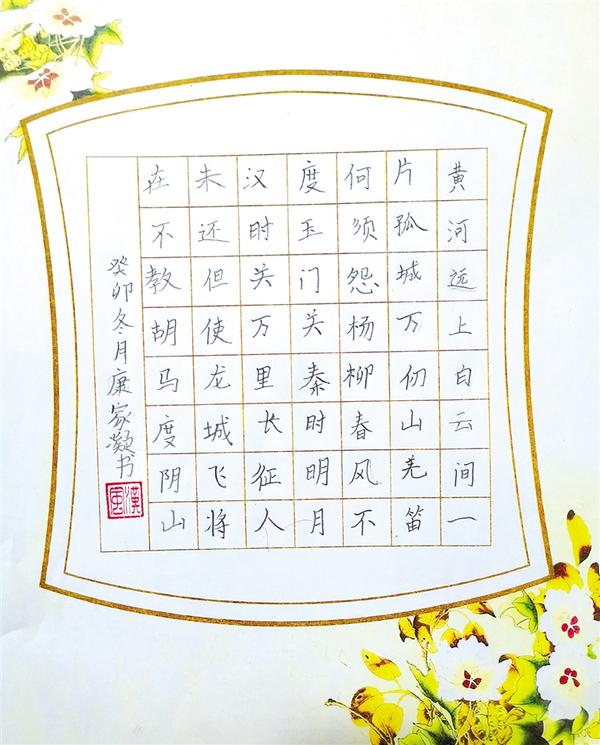 黄河远上白云间一
片孤城万仞山羌笛
何须怨杨柳春风不
度玉门关秦时明月
汉时关万里长征人
未还但使龙城飞将
在不教胡马度阴山
癸卯冬月康家书